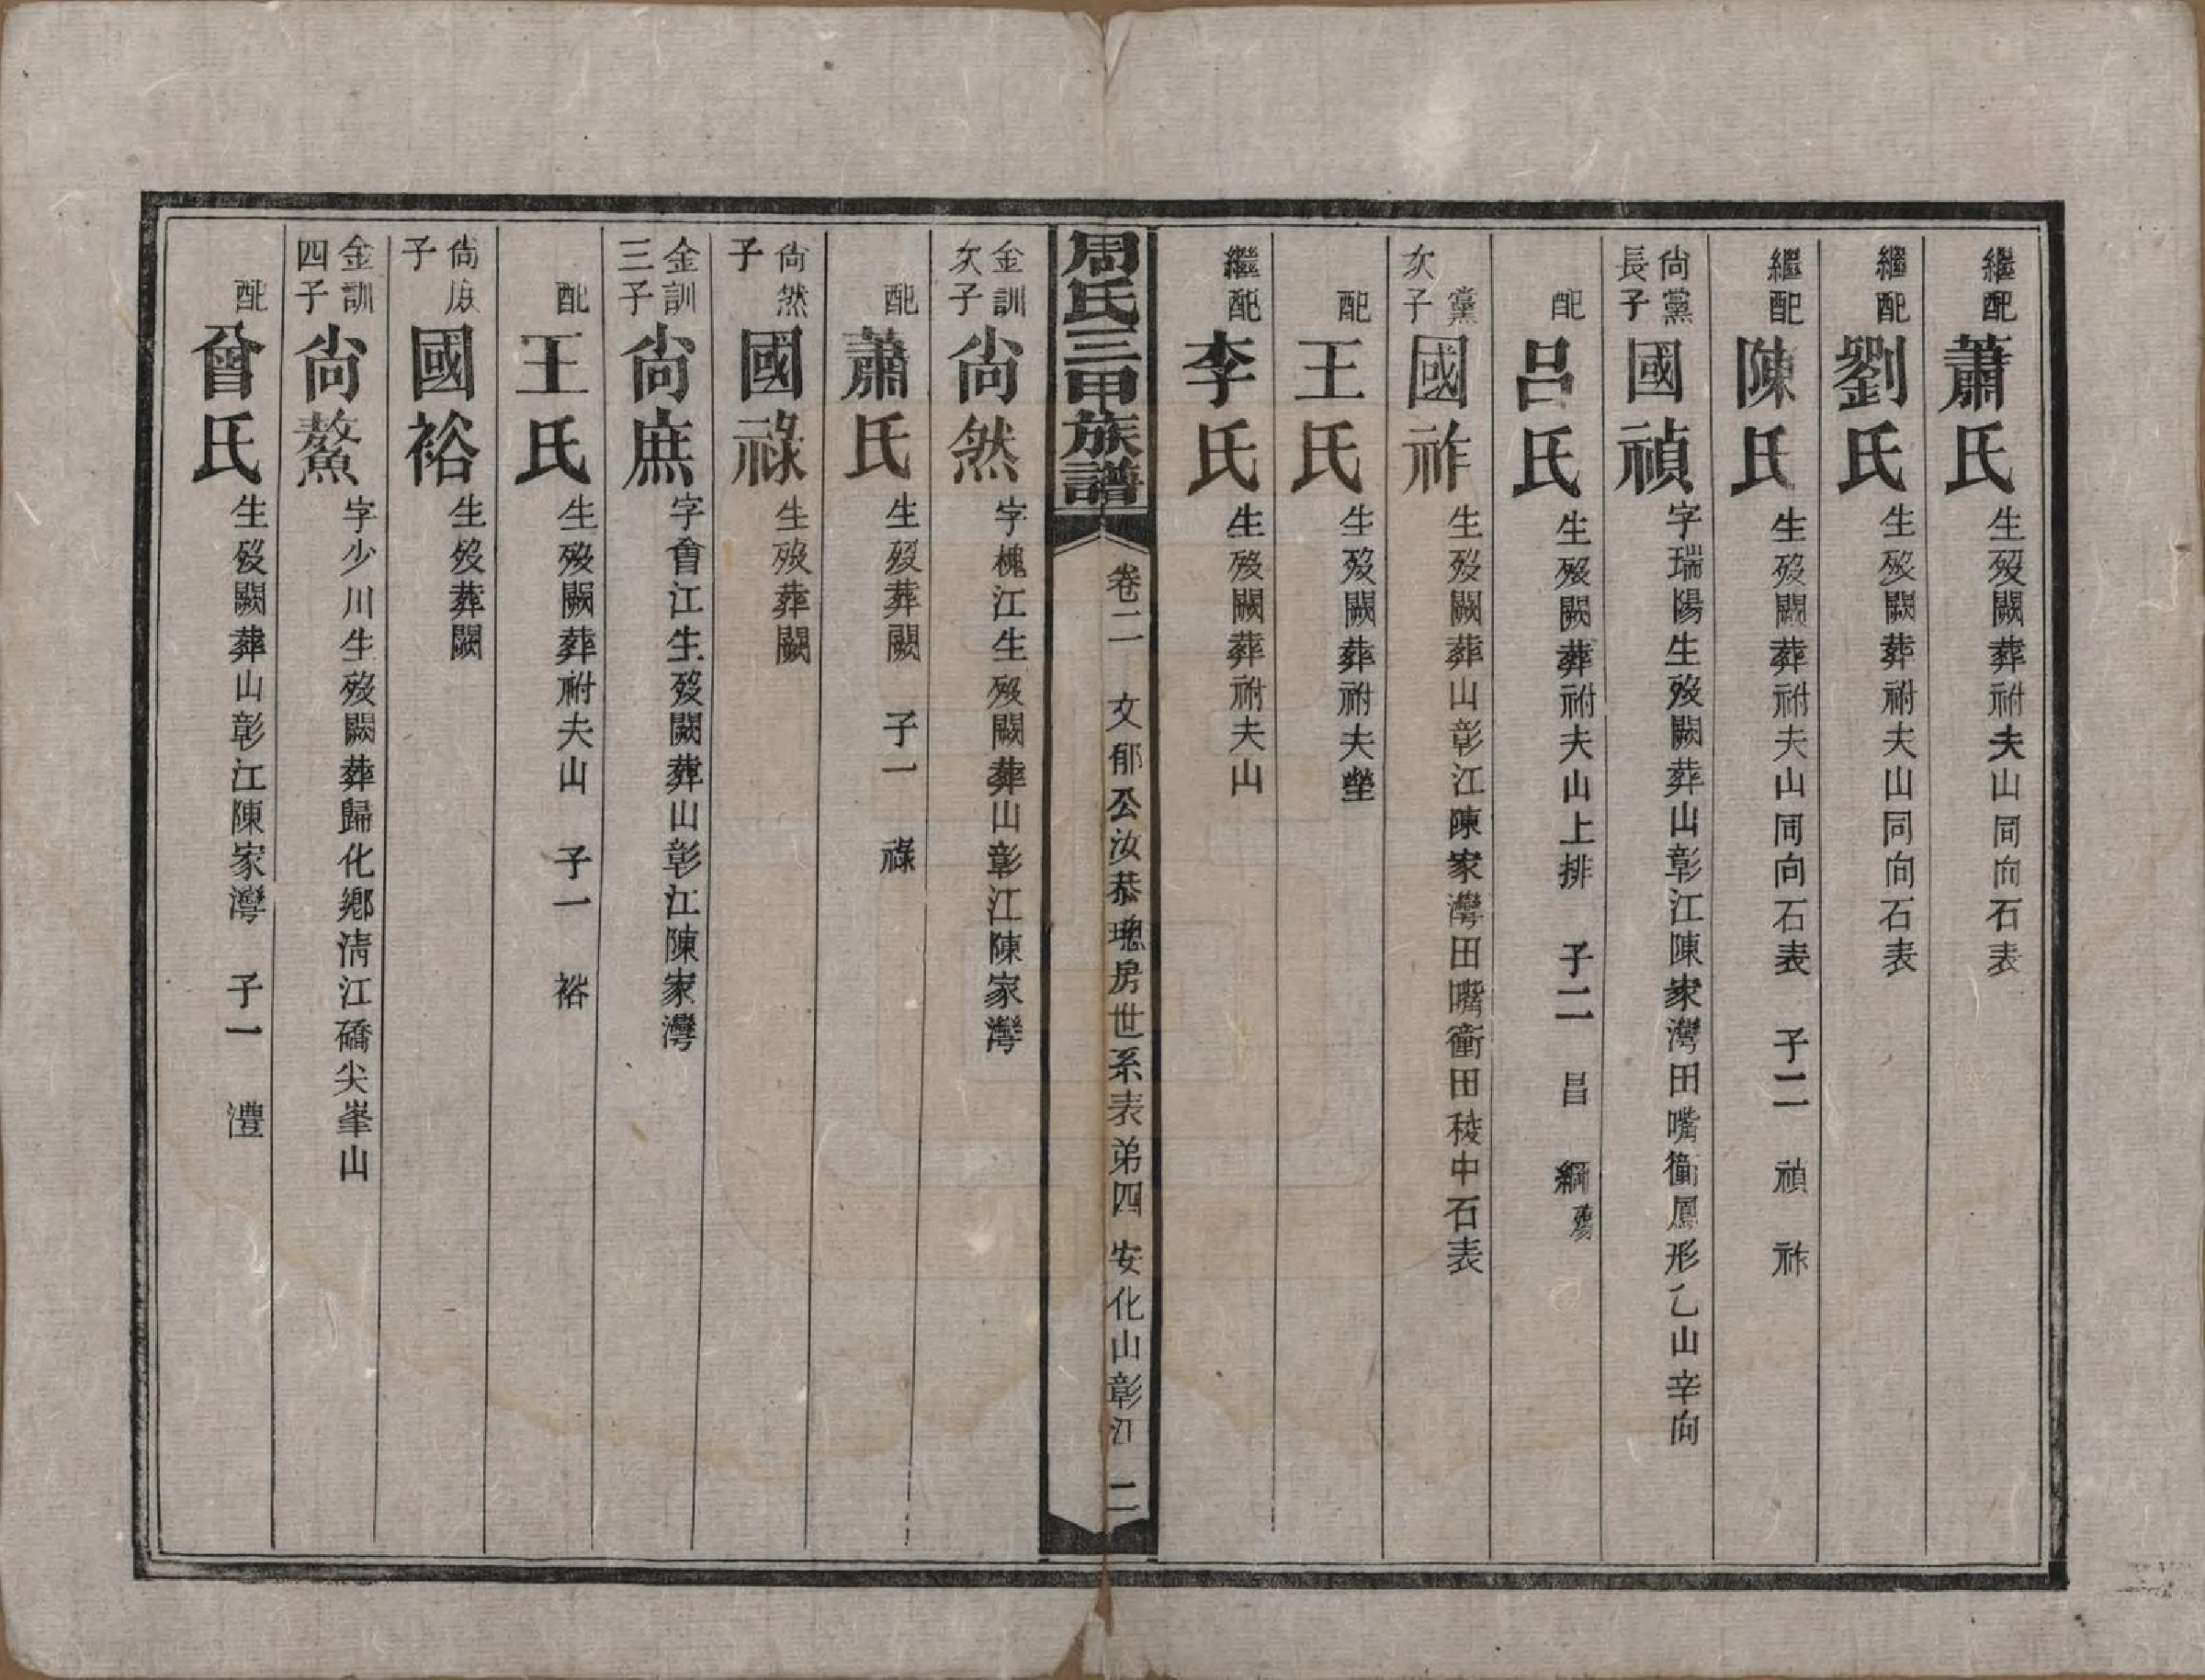 繼配蕭氏生歿闕葬祔夫山同向石表
繼配劉氏生歿闕葬祔夫山同向石表
繼配陳氏生歿闕葬祔夫山同向石表 子二 禎 祚
尙黨長子國禎字瑞陽生歿闕葬山彰江陳家灣田嘴衝鳳形乙山辛向
配呂氏生歿闕葬祔夫山上排 子二 昌 綱殤
黨次子國祚生歿闕葬山彰江陳家灣田嘴衝田稜中石表
配王氏生歿闕葬祔夫塋
繼配李氏生歿闕葬祔夫山
周氏三甲族譜 卷二 文郁公汝恭璁房世系表弟四 安化山彰江 二
金訓次子尙然字槐江生歿闕葬山彰江陳家灣
配蕭氏生歿葬闕 子一 祿
尙然子國祿生歿葬闕
金訓三子尙庶字會江生歿闕葬山彰江陳家灣
配王氏生歿闕葬祔夫山 子一 裕
尙庶子國裕生歿葬闕
金訓四子尙鰲字少川生歿闕葬歸化鄉淸江礄尖峯山
配曾氏生歿闕葬山彰江陳家灣 子一 灃